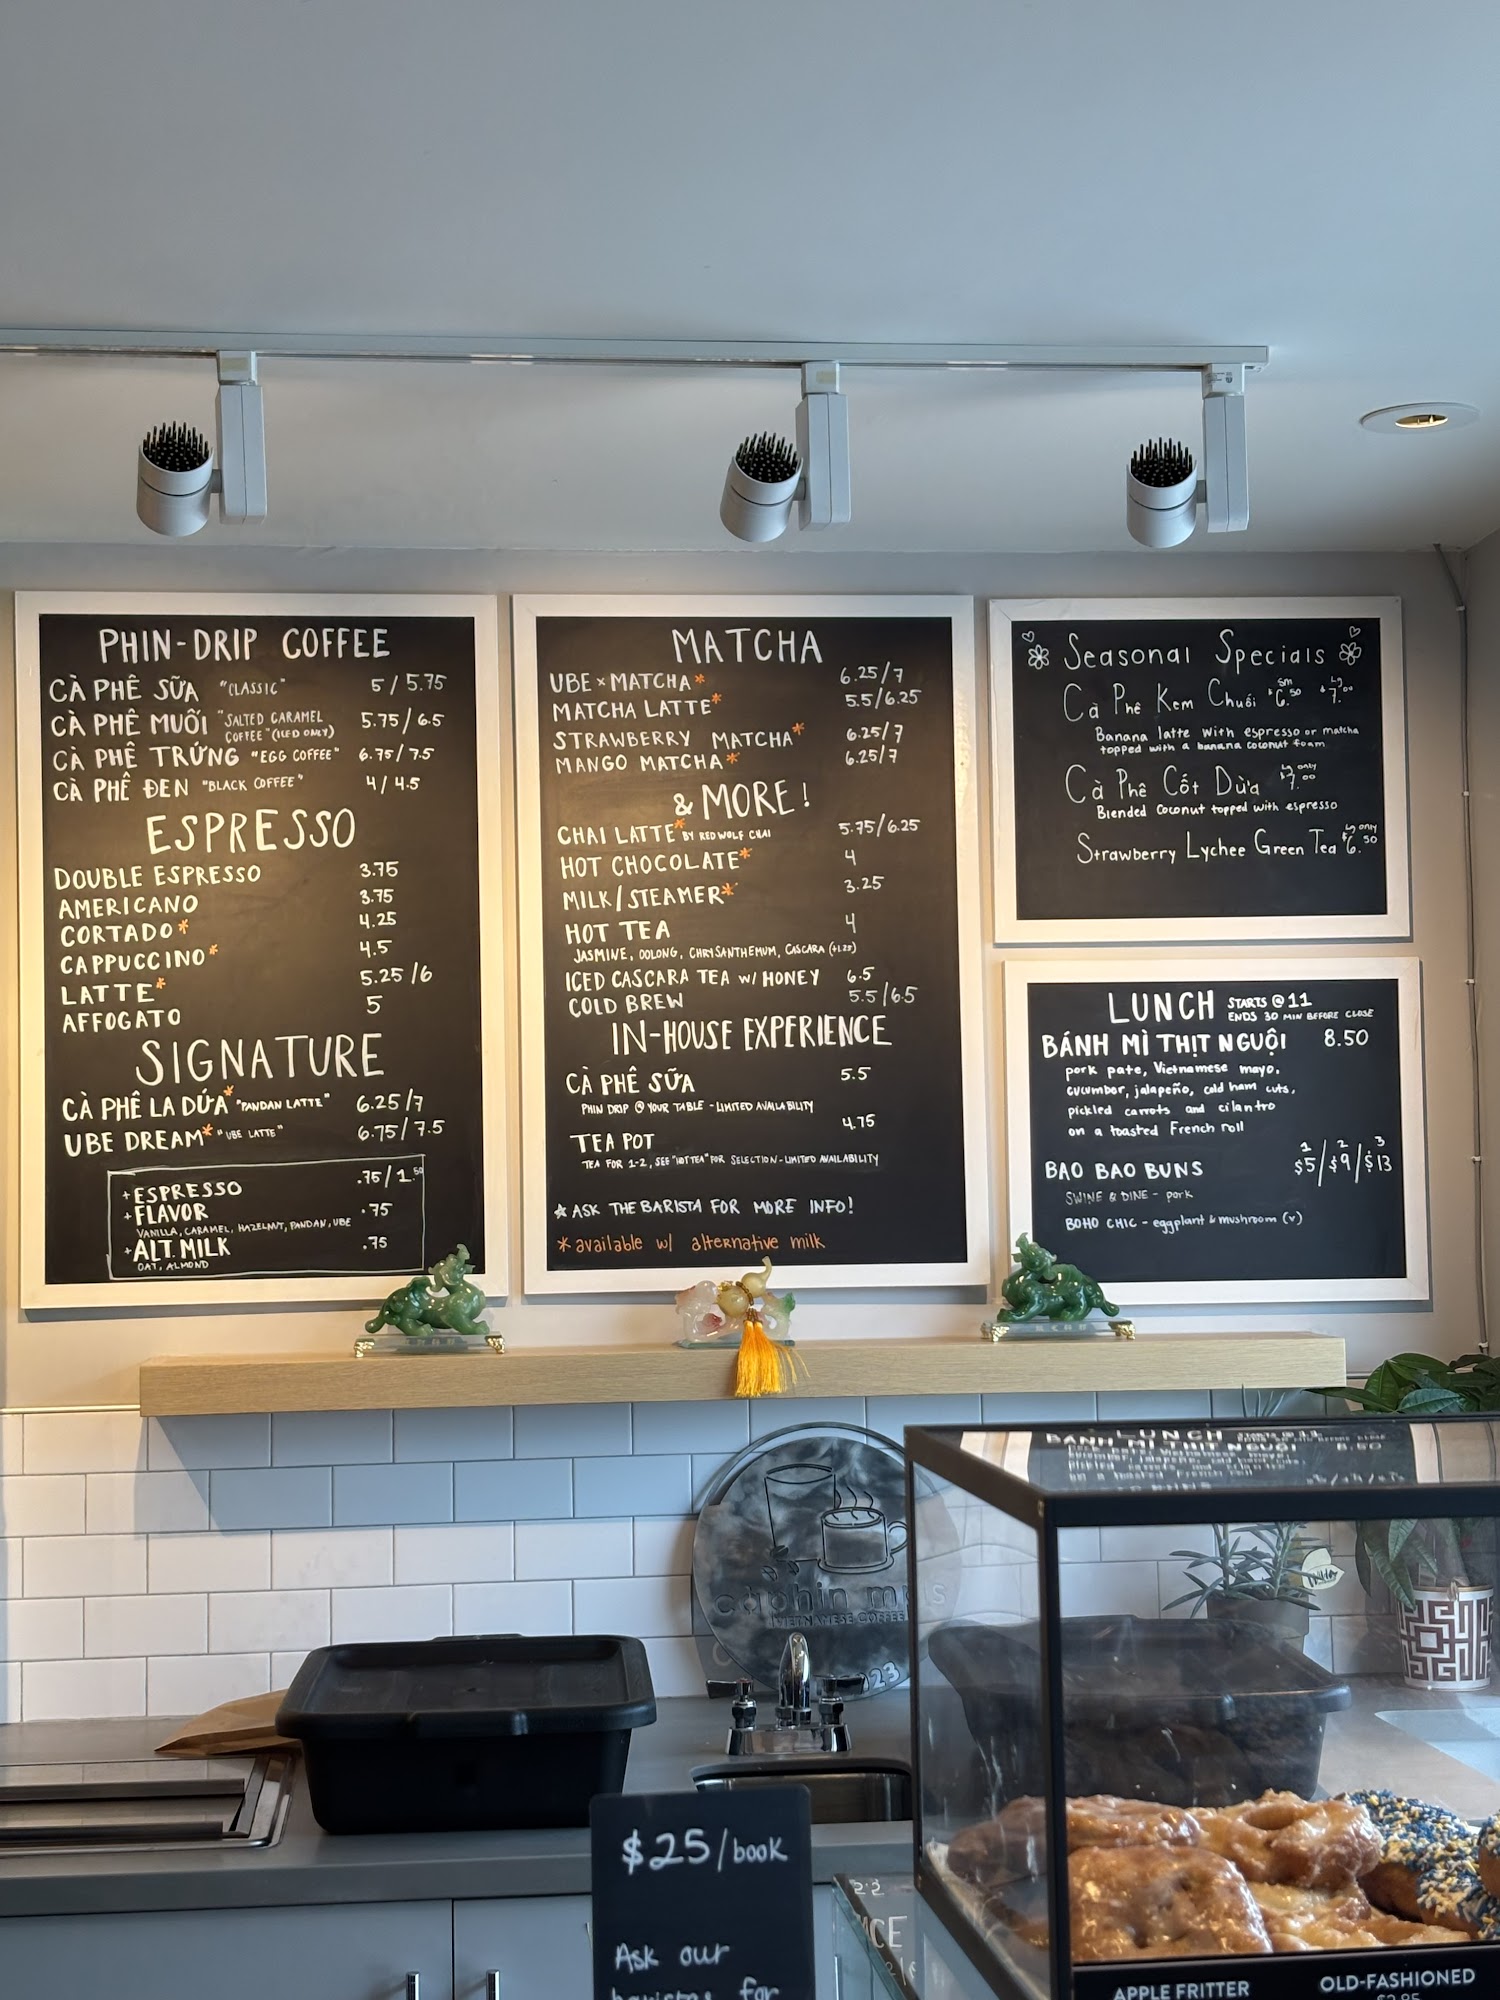 PHIN-DRIP COFFEE
CÀ PHÊ SỮA "CLASSIC" 5/5.75
CÀ PHÊ MUỐI "SALTED CARAMEL COFFEE" (ICED ONLY) 5.75/6.5
CÀ PHÊ TRỨNG "EGG COFFEE" 6.75/7.5
CÀ PHÊ ĐEN "BLACK COFFEE" 4/4.5
ESPRESSO
DOUBLE ESPRESSO 3.75
AMERICANO 3.75
CORTADO* 4.25
CAPPUCCINO* 4.5
LATTE* 5.25/6
AFFOGATO 5
SIGNATURE
CÀ PHÊ LA DỨA* "PANDAN LATTE" 6.25/7
UBE DREAM* "UBE LATTE" 6.75/7.5
+ESPRESSO .75/1.50
+FLAVOR .75
VANILLA, CARAMEL, HAZELNUT, PANDAN, UBE
+ALT. MILK .75
OAT, ALMOND
MATCHA
UBE × MATCHA* 6.25/7
MATCHA LATTE* 5.5/6.25
STRAWBERRY MATCHA* 6.25/7
MANGO MATCHA* 6.25/7
& MORE!
CHAI LATTE* BY RED WOLF CHAI 5.75/6.25
HOT CHOCOLATE* 4
MILK/STEAMER* 3.25
HOT TEA 4
JASMINE, OOLONG, CHRYSANTHEMUM, CASCARA (+1.25)
ICED CASCARA TEA W/ HONEY 6.5
COLD BREW 5.5/6.5
IN-HOUSE EXPERIENCE
CÀ PHÊ SỮA 5.5
PHIN DRIP @ YOUR TABLE - LIMITED AVAILABILITY
TEA POT 4.75
TEA FOR 1-2, SEE "HOT TEA" FOR SELECTION - LIMITED AVAILABILITY
☆ ASK THE BARISTA FOR MORE INFO!
*available w/ alternative milk
Seasonal Specials
Cà Phê Kem Chuối sm $6.50 Lg $7.00
Banana latte with espresso or matcha
topped with a banana coconut foam
Cà Phê Cốt Dừa Lg only $7.00
Blended Coconut topped with espresso
Strawberry Lychee Green Tea Lg only $6.50
LUNCH STARTS @ 11
ENDS 30 MIN BEFORE CLOSE
BÁNH MÌ THỊT NGUỘI 8.50
pork pate, Vietnamese mayo,
cucumber, jalapeño, cold ham cuts,
pickled carrots and cilantro
on a toasted French roll
BAO BAO BUNS 1 $5 / 2 $9 / 3 $13
SWINE & DINE - pork
BOHO CHIC - eggplant & mushroom (v)
VIETNAMESE COFFEE
$25/book
Ask our
baristas for
APPLE FRITTER
OLD-FASHIONED